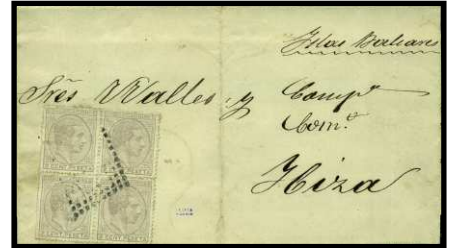 Islas Baleares
Sres Walles y Comp.ª
Com.º
Ibiza